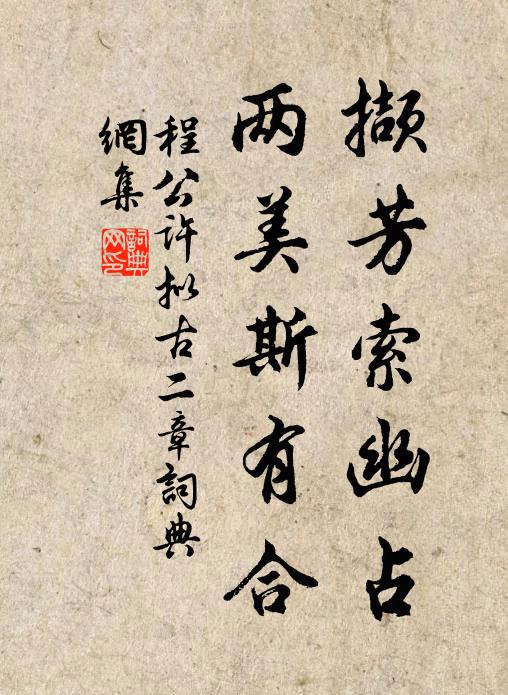 擷芳索幽占
两美斯有合
程公许拟古二章詞典
網集
詞典
网印